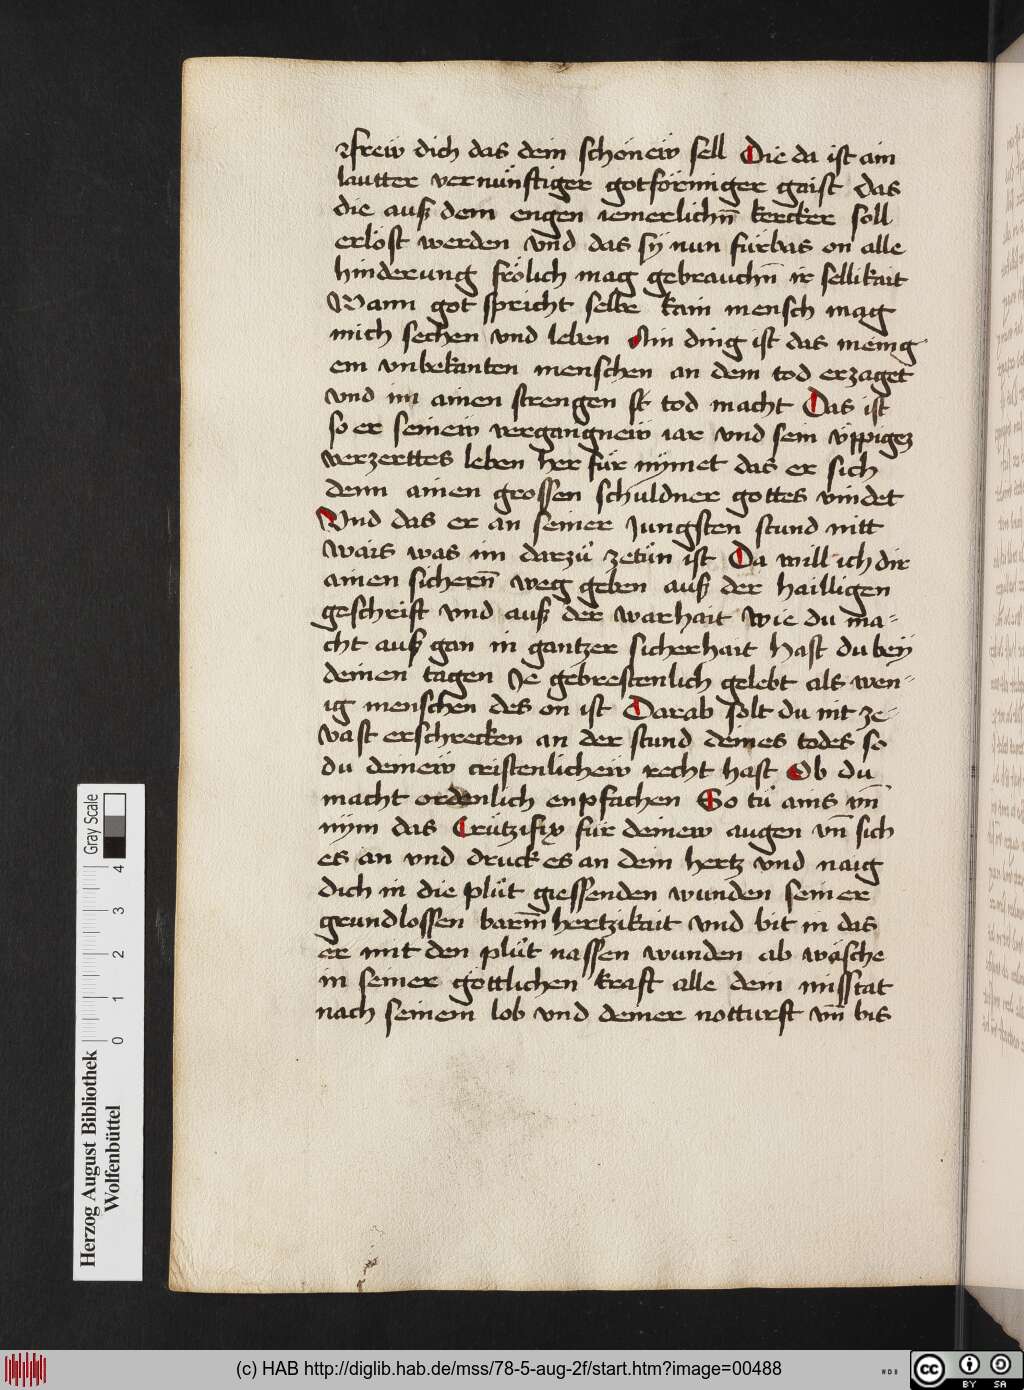 rfrew dich das dein schönew sell Die da ist ain
lautter vernünftiger gotförmiger gaist das
die auß dem engen iemerlichn̄ kercker soll
erlöst werden vnd das sÿ nun fürbas on alle
hinderung frölich mag gebrauchn̄ ir sellikait
Wann got spricht selbe kain mensch mag
mich sechen vnd leben Ain ding ist das menig
em vnbekanten menschen an dem tod erzaget
vnd im ainen strengen st tod macht Das ist
so er seinew vergangnew iar vnd sein v̈ppigez
verzerttes leben her für nÿmet das er sich
denn ainen grossen schuldner gottes vindet
Vnd das er an seiner Jungsten stund nitt
wais was im darzü zetün ist Da will ich dir
ainen sichern̄ weg geben auß der hailligen
geschrift vnd auß der warhait wie du ma-
cht auß gan in gantzer sicherhait Hast du beÿ
deinen tagen Je gebrestenlich gelebt als wen-
ig menschen des on ist Darab solt du nit ze
vast erschrecken an der stund deines todes so
du deinew cristenlichew recht hast Ob du
macht ordenlich enpfachen So tü ains vn̄
nÿm das Crützifix für deinew augen vn̄ sich
es an vnd druck es an dein hertz vnd naig
dich in die plüt giessenden wunden seiner
grundlossen barm̄hertzikait vnd bit in das
er mit den plüt nassen wunden ab wäsche
in seiner göttlichen kraft alle dein misstat
nach seinem lob vnd deiner notturft vn̄ bis
Gray Scale
4
3
2
1
0
Herzog August Bibliothek
Wolfenbüttel
(c) HAB http://diglib.hab.de/mss/78-5-aug-2f/start.htm?image=00488
cc BY SA